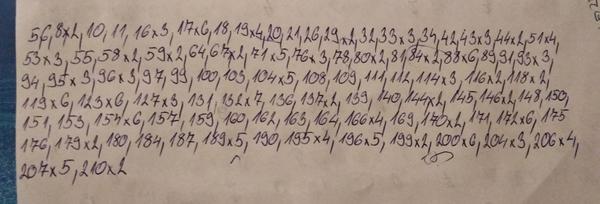 56, 8x2, 10, 11, 16x3, 17x6, 18, 19x4, 20, 21, 26, 29x2, 32, 33x3, 34, 42, 43x3, 44x2, 51x4,
53x3, 55, 58x2, 59x2, 64, 67x2, 71x5, 76x3, 78, 80x2, 81, 84x2, 88x6, 89, 91, 93x3,
94, 95x3, 96x3, 97, 99, 100, 103, 104x5, 108, 109, 111, 112, 114x3, 116x2, 118x2,
119x6, 123x6, 127x3, 131, 132x7, 136, 137x2, 139, 140, 144x2, 145, 146x2, 148, 150,
151, 153, 154x6, 157, 159, 160, 162, 163, 164, 166x4, 169, 170x2, 171, 172x6, 175
176, 179x2, 180, 184, 187, 189x5, 190, 195x4, 196x5, 199x2, 200x6, 204x3, 206x4,
207x5, 210x2